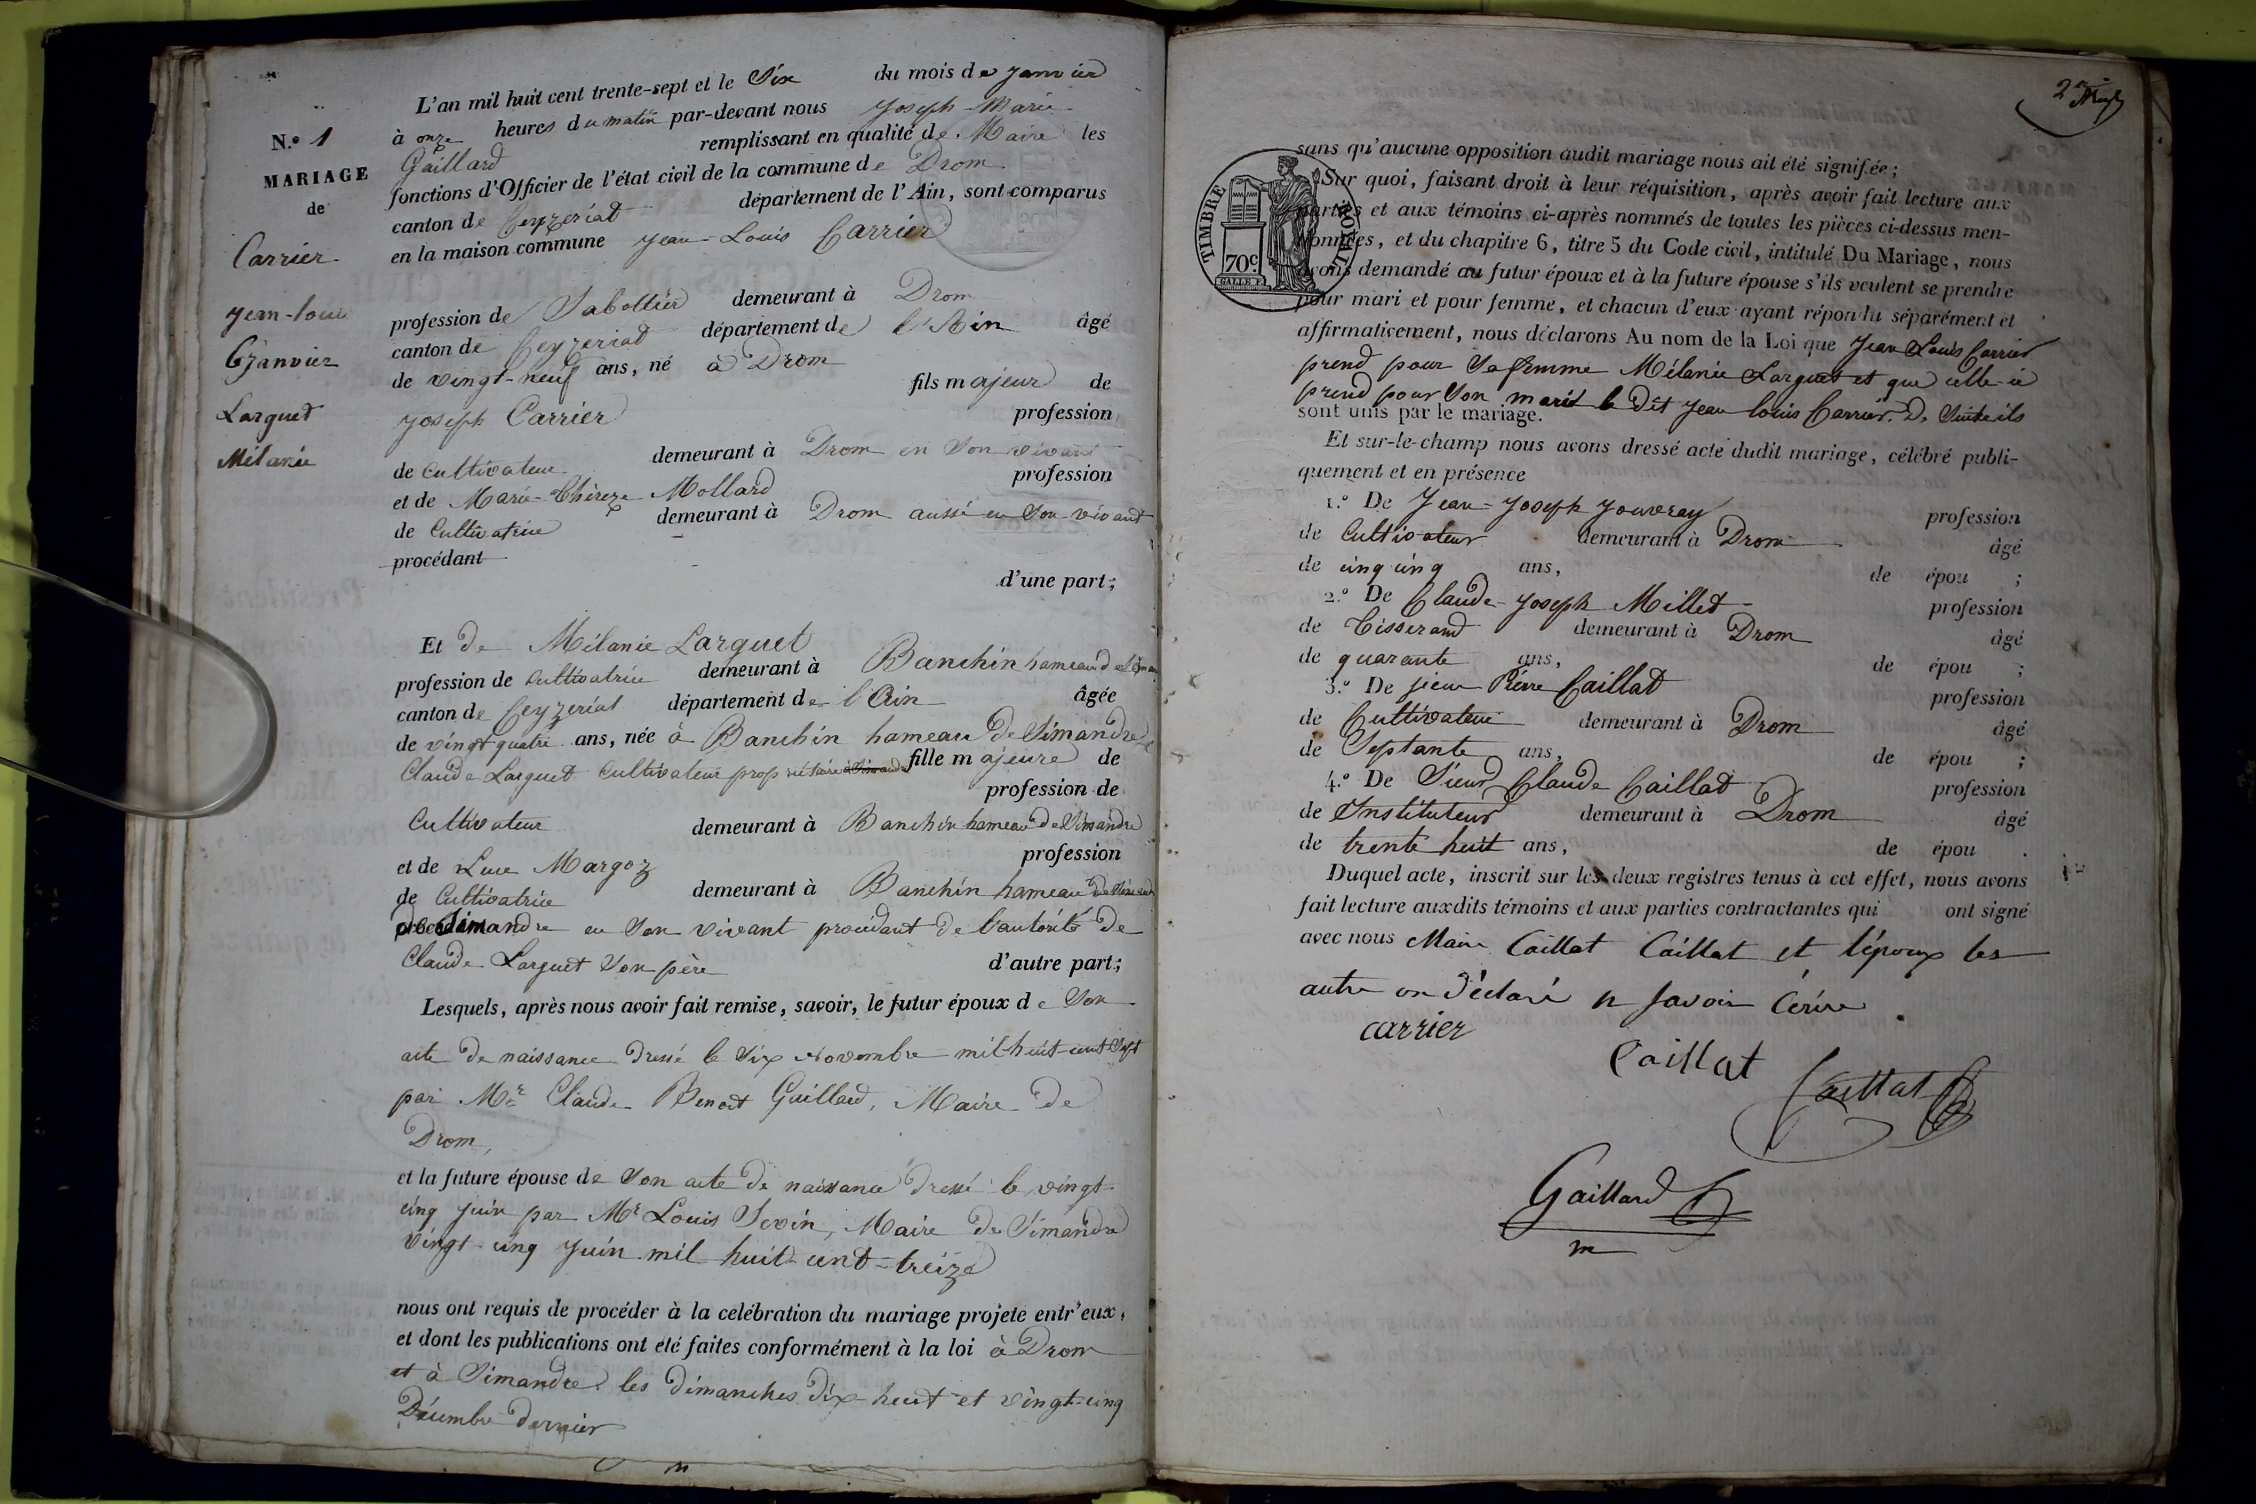 L'an mil huit cent trente-sept et le Six du mois de janvier
à onze heures du matin par-devant nous Joseph-Marie
Gaillard remplissant en qualité de Maire les
fonctions d'Officier de l'état civil de la commune de Drom
canton de Ceyzériat département de l'Ain, sont comparus
en la maison commune Jean-Louis Carrier
N.o 1
MARIAGE
de
Carrier
Jean-louis
6 Janvier
Larguet
Mélanie
profession de Sabottier demeurant à Drom
canton de Ceyzeriat département de l'Ain âgé
de vingt-neuf ans, né à Drom
fils majeur de
Joseph Carrier profession
de Cultivateur demeurant à Drom en Son vivant
et de Marie-Thérèze Mollard profession
de Cultivatrice demeurant à Drom aussi en Son vivant
procédant
d'une part;
Et de Mélanie Larguet
profession de Cultivatrice demeurant à Banchin hameau de
canton de Ceyzériat département de l'Ain âgée
de vingt quatre ans, née à Banchin hameau de Simandre
Claude Larguet Cultivateur propriétaire à Simandre fille majeure de
profession de
Cultivateur demeurant à Banchin hameau de Simandre
et de Luce Margoz profession
de Cultivatrice demeurant à Banchin hameau de
Simandre en Son vivant procédant de l'autorité de
Claude Larguet Son père d'autre part;
Lesquels, après nous avoir fait remise, savoir, le futur époux de Son
acte de naissance dressé le Six Novembre mil huit cent Sept
par Mr Claude Benoit Guillard, Maire de
Drom,
et la future épouse de Son acte de naissance dressé le vingt
cinq juin par Mr Louis Sevin, Maire de Simandre
vingt-cinq Juin mil huit cent-treize
nous ont requis de procéder à la celébration du mariage projeté entr'eux,
et dont les publications ont été faites conformément à la loi à Drom
et à Simandre les dimanches dix-huit et vingt-cinq
Décembre dernier
2
TIMBRE ROYAL
70c
sans qu'aucune opposition audit mariage nous ait été signifiée;
Sur quoi, faisant droit à leur réquisition, après avoir fait lecture aux
parties et aux témoins ci-après nommés de toutes les pièces ci-dessus men-
tionnées, et du chapitre 6, titre 5 du Code civil, intitulé Du Mariage, nous
avons demandé au futur époux et à la future épouse s'ils veulent se prendre
pour mari et pour femme, et chacun d'eux ayant répondu séparément et
affirmativement, nous déclarons Au nom de la Loi que Jean Louis Carrier
prend pour Sa femme Mélanie Larguet et que celle-ci
prend pour Son mari le dit Jean louis Carrier. De Suite ils
sont unis par le mariage.
Et sur-le-champ nous avons dressé acte dudit mariage, célébré publi-
quement et en présence
1.o De Jean-Joseph Jouvray profession
de Cultivateur demeurant à Drom âgé
de cinq cinq ans, de épou ;
2.o De Claude-Joseph Millet profession
de Tisserand demeurant à Drom âgé
de quarante ans, de épou ;
3.o De sieur Pierre Caillat profession
de Cultivateur demeurant à Drom âgé
de Septante ans, de épou ;
4.o De Sieur Claude Caillat profession
de Instituteur demeurant à Drom âgé
de trente huit ans, de épou .
Duquel acte, inscrit sur les deux registres tenus à cet effet, nous avons
fait lecture auxdits témoins et aux parties contractantes qui ont signé
avec nous Maire Caillat Caillat et l'époux les
autre on déclaré n Savoir Cérire
carrier
Caillat
Caillat
Gaillard
m